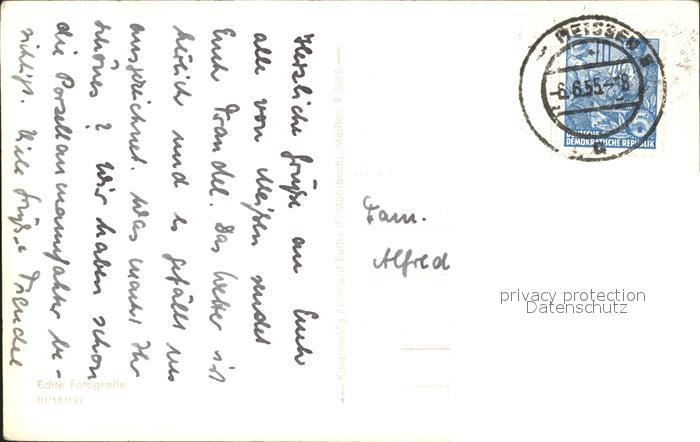 Herzliche Grüße an Euch
alle von Meißen sendet
Euch Trandel. Das Wetter ist
herrlich und es gefällt uns
ausgezeichnet. Was macht Ihr
schönes? Wir haben schon
die Porzellanmanufaktur be-
sichtigt. Viele Grüße Trandel
Echte Fotografie
Kunstverlag Reinhard Rothe
Meißen
Fam.
Alfred
MEISSEN
-6.6.55.-8
a
DEUTSCHE
DEMOKRATISCHE REPUBLIK
privacy protection
Datenschutz